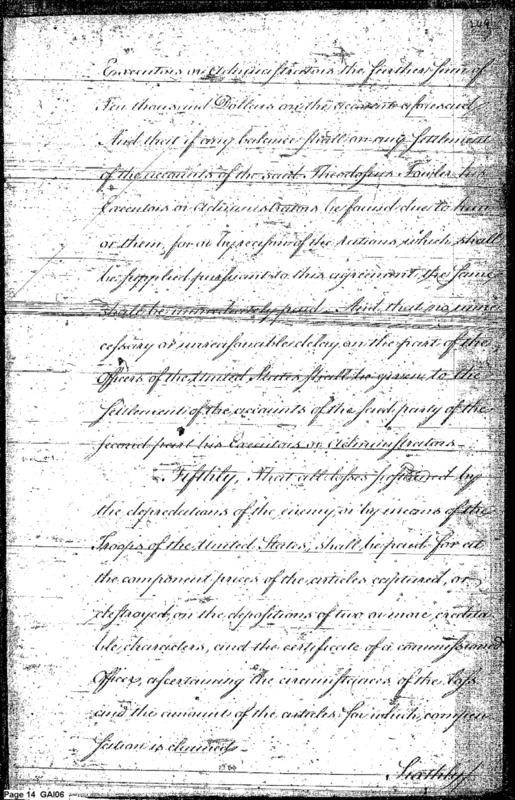 249
Executors or Administrators the further sum of
Ten thousand Dollars on the account aforesaid
And that if any balance shall on any settlement
of the accounts of the said Theodosius Fowler his
Executors or Administrators be found due to him
or them, for or by reason of the rations, which shall
be supplied pursuant to this agreement, the same
shall be immediately paid. And that no unne
cessary or unreasonable delay on the part of the
Officers of the United States shall be given to the
Settlement of the accounts of the said party of the
second part his Executors or Administrators
Fifthly, That all losses sustained by
the depredations of the enemy, or by means of the
Troops of the United States, shall be paid for at
the component prices of the articles captured or
destroyed, on the depositions of two or more credita
ble characters, and the certificate of a commissioned
Officer, ascertaining the circumstances of the loss
and the amount of the articles for which compen
sation is claimed
Sixthly
Page 14 GAI06